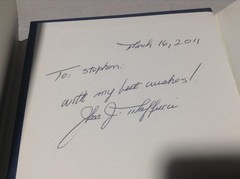 March 16, 2011
To: Stephen:
with my best wishes!